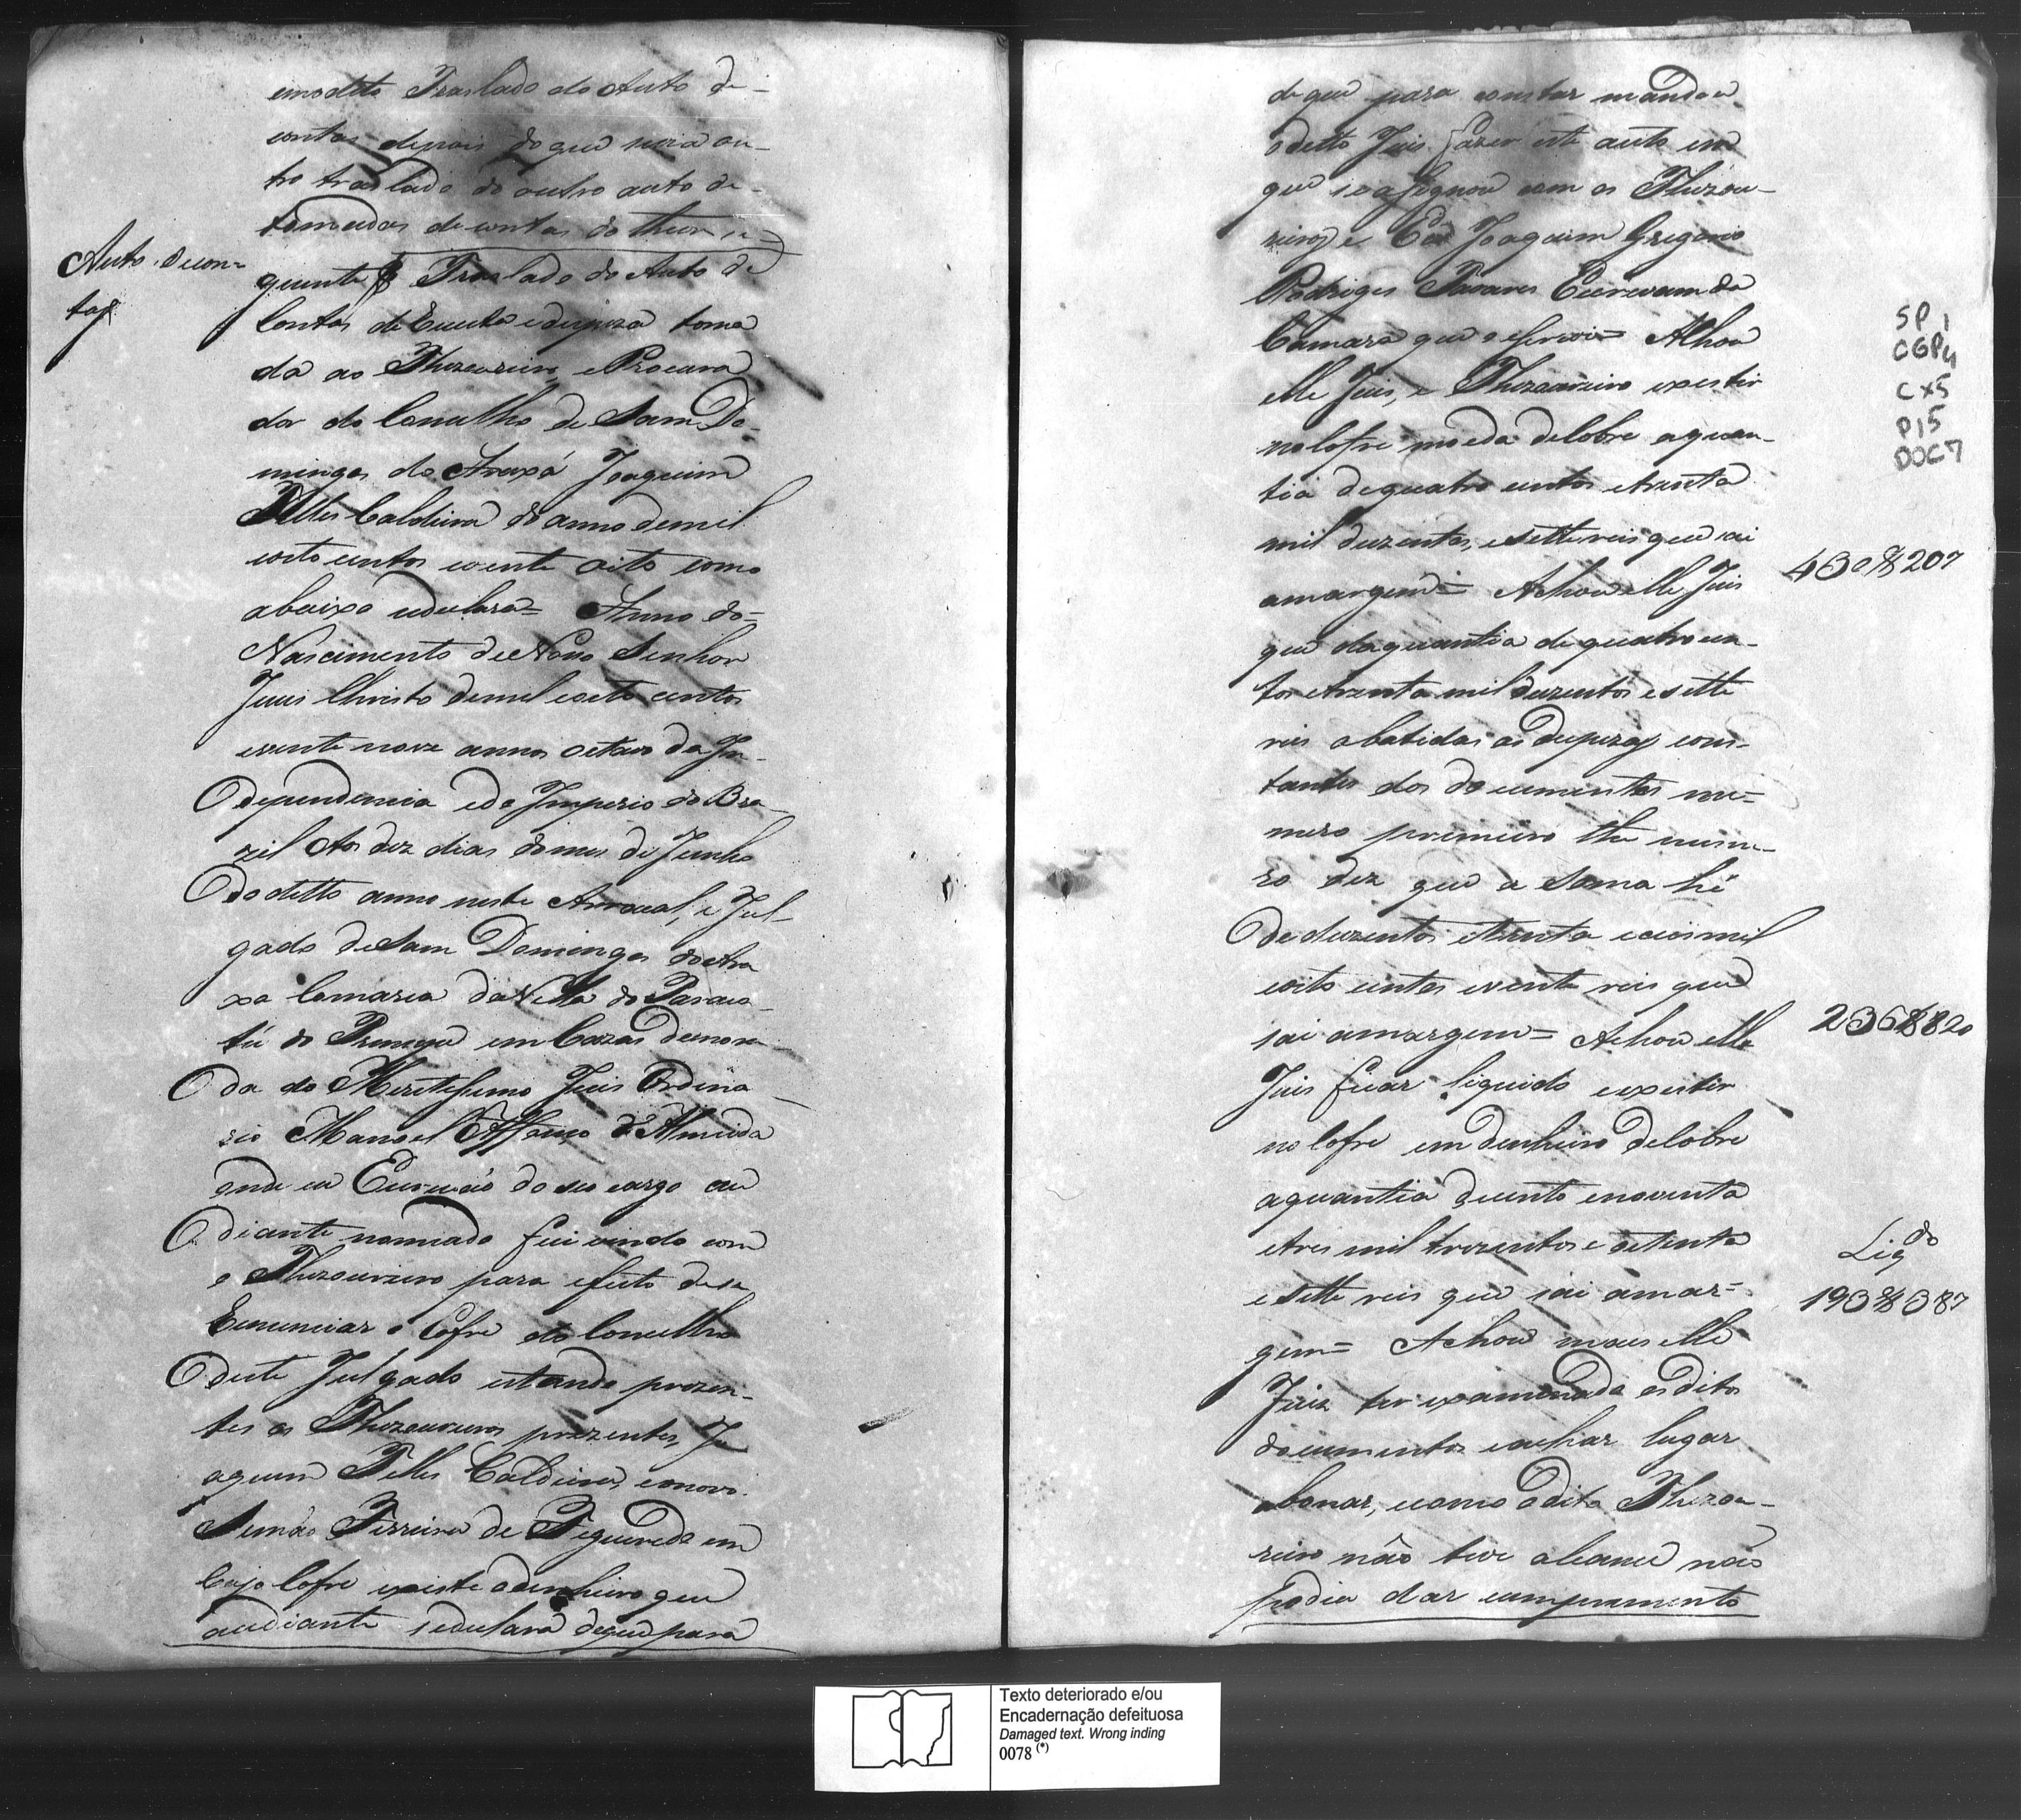 emodito Traslado do Auto de-
contas depois do que viera ou-
tro traslado do outro auto de-
tomadas de contas do theor se-
Auto. de con=
tas
guinte Traslado do Auto de
Contas de Receita edespeza toma
da ao Thezoureiro e Procura
dor do Conselho de Sam Do-
mingos do Araxá Joaquim
Telles Caldeira do anno demil
oito centos evente oito como
abaixo sedeclara= Anno do=
Nascimento de Nosso Senhor
Jesus Christo demil eoito centos
evente nove annos oitavo da In-
dependencia edo Imperio do Bra-
zil Aos dez dias do mes de Junho
do ditto anno neste Arraial, e Jul-
gado de Sam Domingos do Ara
xa Comarca da Villa do Paraca-
tú do Principe em Cazas demora
da do Meretissimo Juis Ordina-
rio Manoel Affonço d'Almeida
onde eu Escrivão do seo cargo au
diante nomiado fui vindo com
o Thezoureiro para efeito dese
Comiciar o Cofre do Conselho
deste Julgado estando prezen-
tes os Thezoureiros prezentes, Jo
aquim Telles Caldeira, eonovo
Simão Ferreira de Figueredo em
Cujo Cofre existe odinheiro que
audiante sedeclara deque para
de que para constar mandou
o ditto Juis fazer este auto em
que se assignou com os Thezou-
reiros e Eu Joaquim Gregorio
Rodrigues Tavares Escrivam da
Camara que o escrevi= Achou
elle Juis, e Thezoureiro existir
no Cofre moeda deCobre aquan-
tia dequatro centos etrinta
mil duzentos, esette reis que sai
amargem= Achou elle Juis
430$207
que daquantia de quatrocen-
tos etrinta mil duzentos esette
reis abatidas as despezas cons-
tantes dos documentos nu=
mero primeiro the nume-
ro dez que a soma hé
deduzentos etrinta eceis mil
eoito centos evente reis que
sai amargem= Achou elle
236$820
Juis ficar liquido existir
no Cofre em dinheiro deCobre
aquantia decento enoventa
etres mil trezentos e oitenta
esette reis que sai amar=
Liqdo
193$387
gem= Achou mais elle
Juiz ter examinado os ditos
documentos eachar lugar
abonar, ecomo o dito Thezou-
reiro não teve alcance não
podia dar comprimento
SP 1
CGP4
CX5
P15
DOC7
Texto deteriorado e/ou
Encadernação defeituosa
Damaged text. Wrong inding
0078 (*)